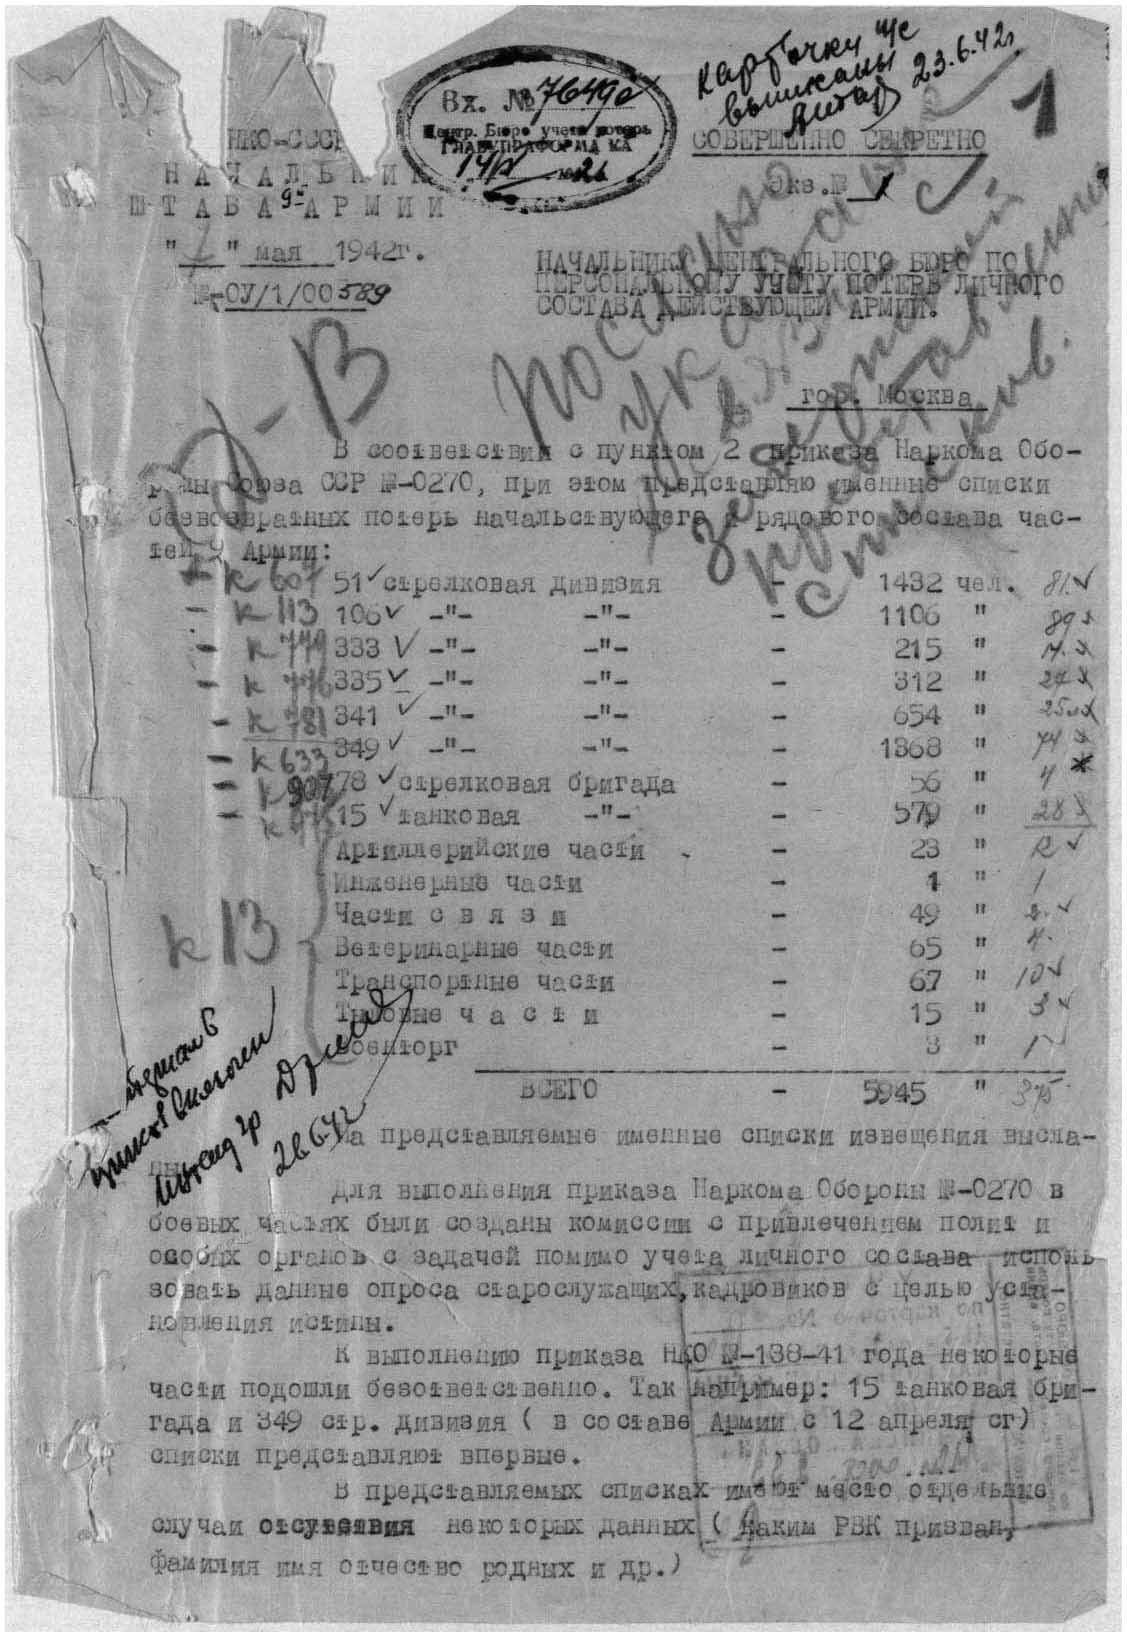 Карточки н/с
выписаны
23.6.42г.
1
Вх. № 7649с
Центр. Бюро учета потерь
ГЛАВУПРАФОРМА КА
НКО-СССР
СОВЕРШЕННО СЕКРЕТНО
НАЧАЛЬНИК
Экз.№ 1
ШТАБА 9й АРМИИ
"1" мая 1942г.
№-ОУ/1/00589
НАЧАЛЬНИКУ ЦЕНТРАЛЬНОГО БЮРО ПО
ПЕРСОНАЛЬНОМУ УЧЕТУ ПОТЕРЬ ЛИЧНОГО
СОСТАВА ДЕЙСТВУЮЩЕЙ АРМИИ.
гор. Москва
В соответствии с пунктом 2 приказа Наркома Обо-
роны Союза ССР №-0270, при этом представляю именные списки
безвозвратных потерь начальствующего и рядового состава час-
тей 9 Армии:
к 607 51 стрелковая дивизия - 1432 чел. 81
к 113 106 -"- -"- - 1106 " 89
к 779 333 -"- -"- - 215 " 17
к 776 335 -"- -"- - 312 " 27
к 781 341 -"- -"- - 654 " 25
к 633 349 -"- -"- - 1368 " 74
к 907 78 стрелковая бригада - 56 " 4
15 танковая -"- - 579 " 28
Артиллерийские части - 23 " 2
Инженерные части - 1 " 1
Части связи - 49 " 2
к 13
Ветеринарные части - 65 " 4
Транспортные части - 67 " 10
Тыловые части - 15 " 3
Военторг - 3 " 1
ВСЕГО - 5945 " 375
На представляемые именные списки извещения высла-
ны.
Для выполнения приказа Наркома Обороны №-0270 в
боевых частях были созданы комиссии с привлечением полит и
особых органов с задачей помимо учета личного состава исполь
зовать данные опроса старослужащих, кадровиков с целью уста-
новления истины.
К выполнению приказа НКО №-138-41 года некоторые
части подошли безответственно. Так например: 15 танковая бри-
гада и 349 стр. дивизия ( в составе Армии с 12 апреля сг)
списки представляют впервые.
В представляемых списках имеют место отдельные
случаи отсутствия некоторых данных ( каким РВК призван,
фамилия имя отчество родных и др.)